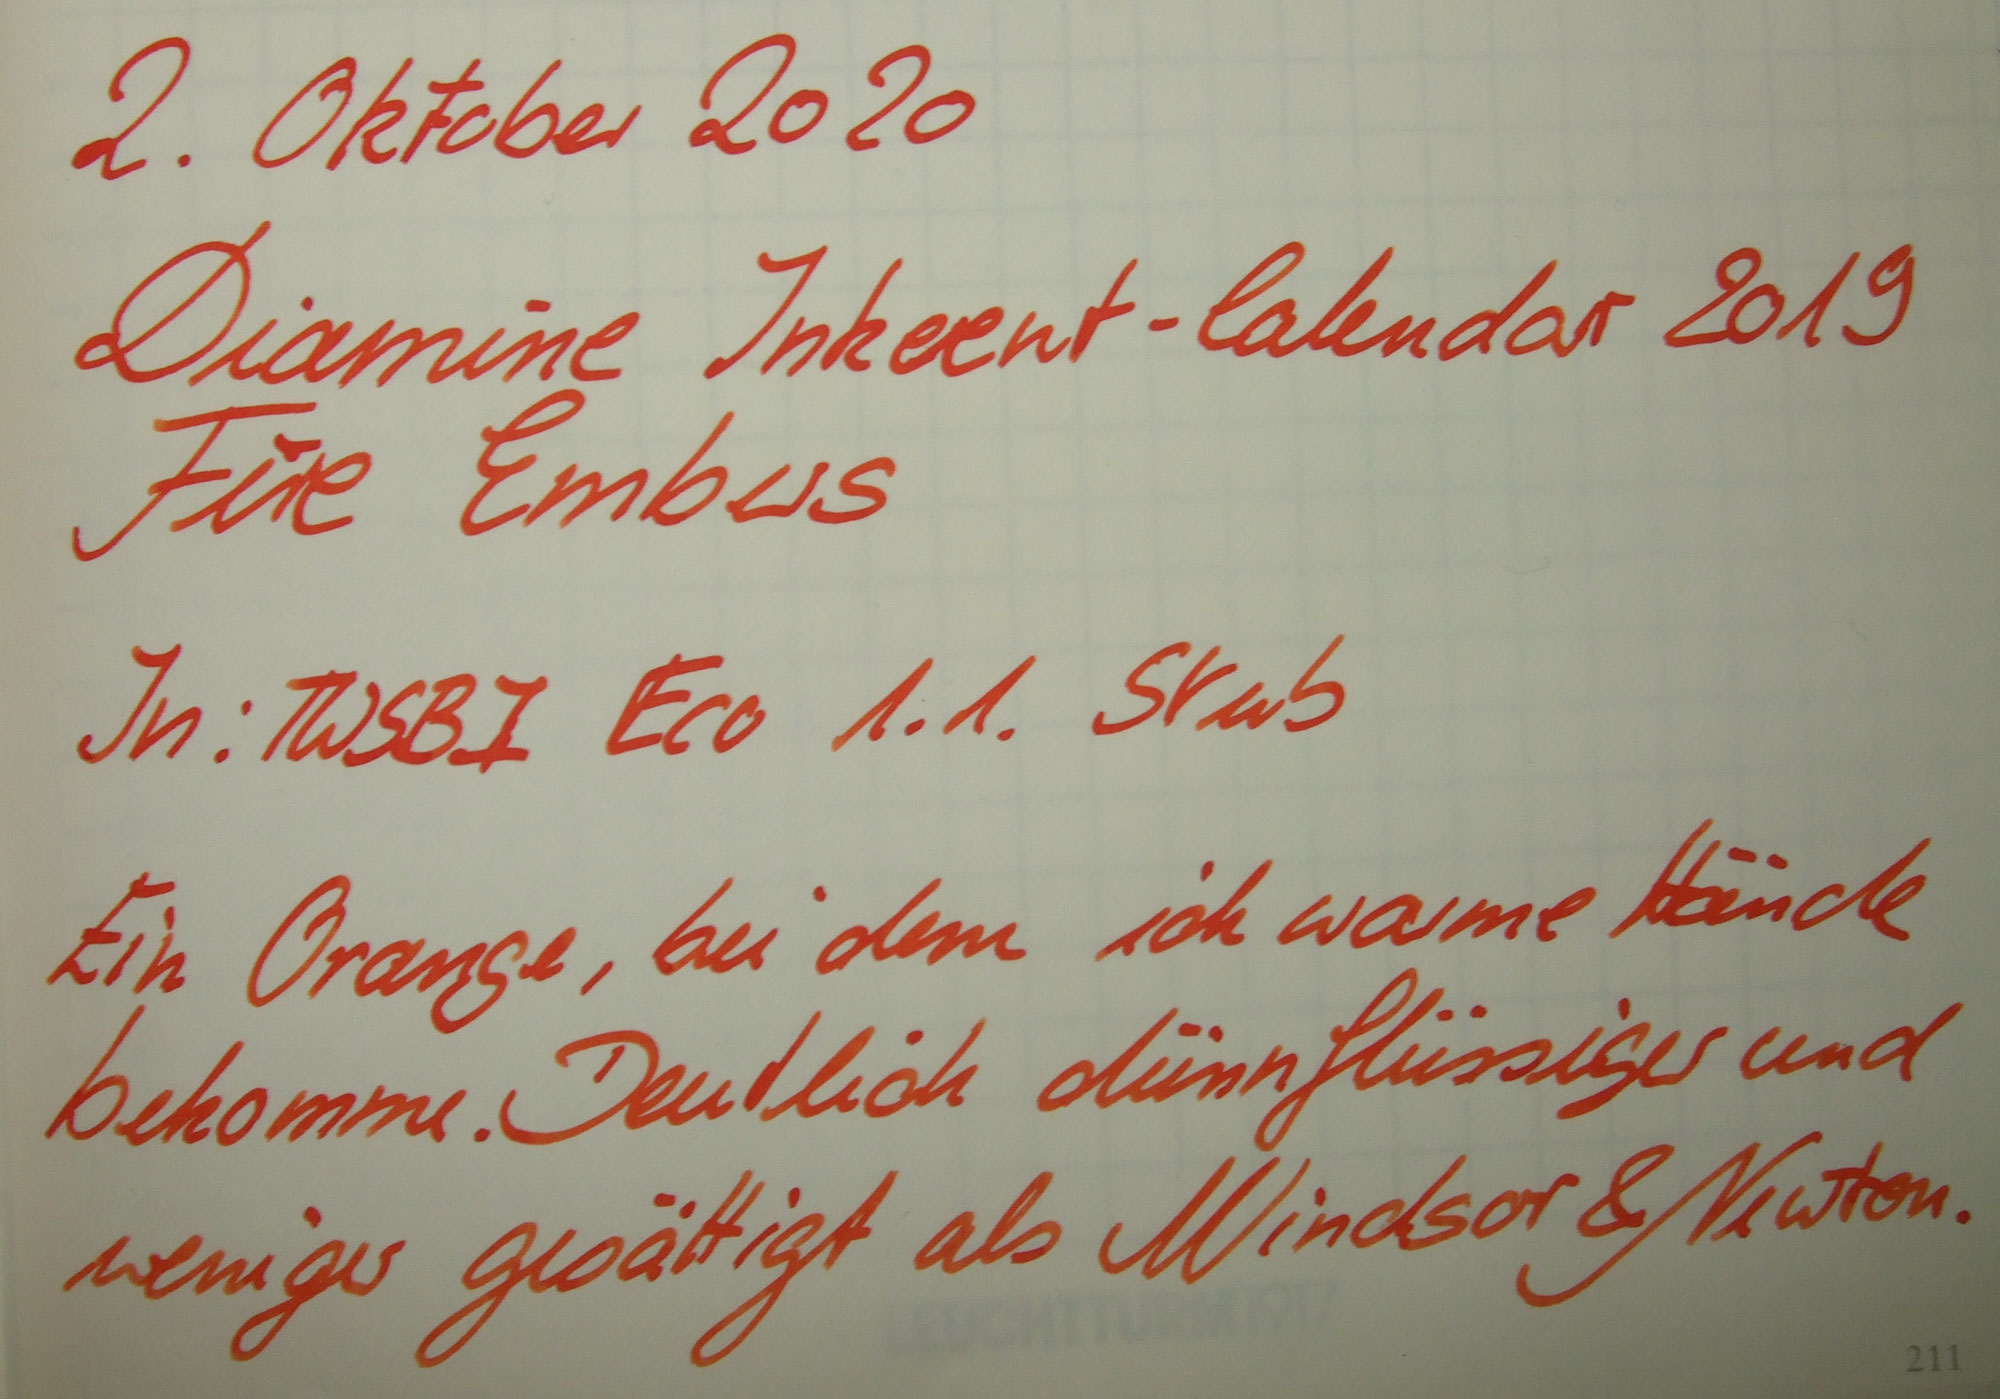 2. Oktober 2020
Diamine Inkeent-Calendar 2019
Fire Embus
In: TWSBI Eco 1.1. Stub
Ein Orange, bei dem ich warme Hände
bekomme. Deutlich dünnflüssiger und
weniger gesättigt als Windsor & Newton.
LEUCHTTURM1917
211